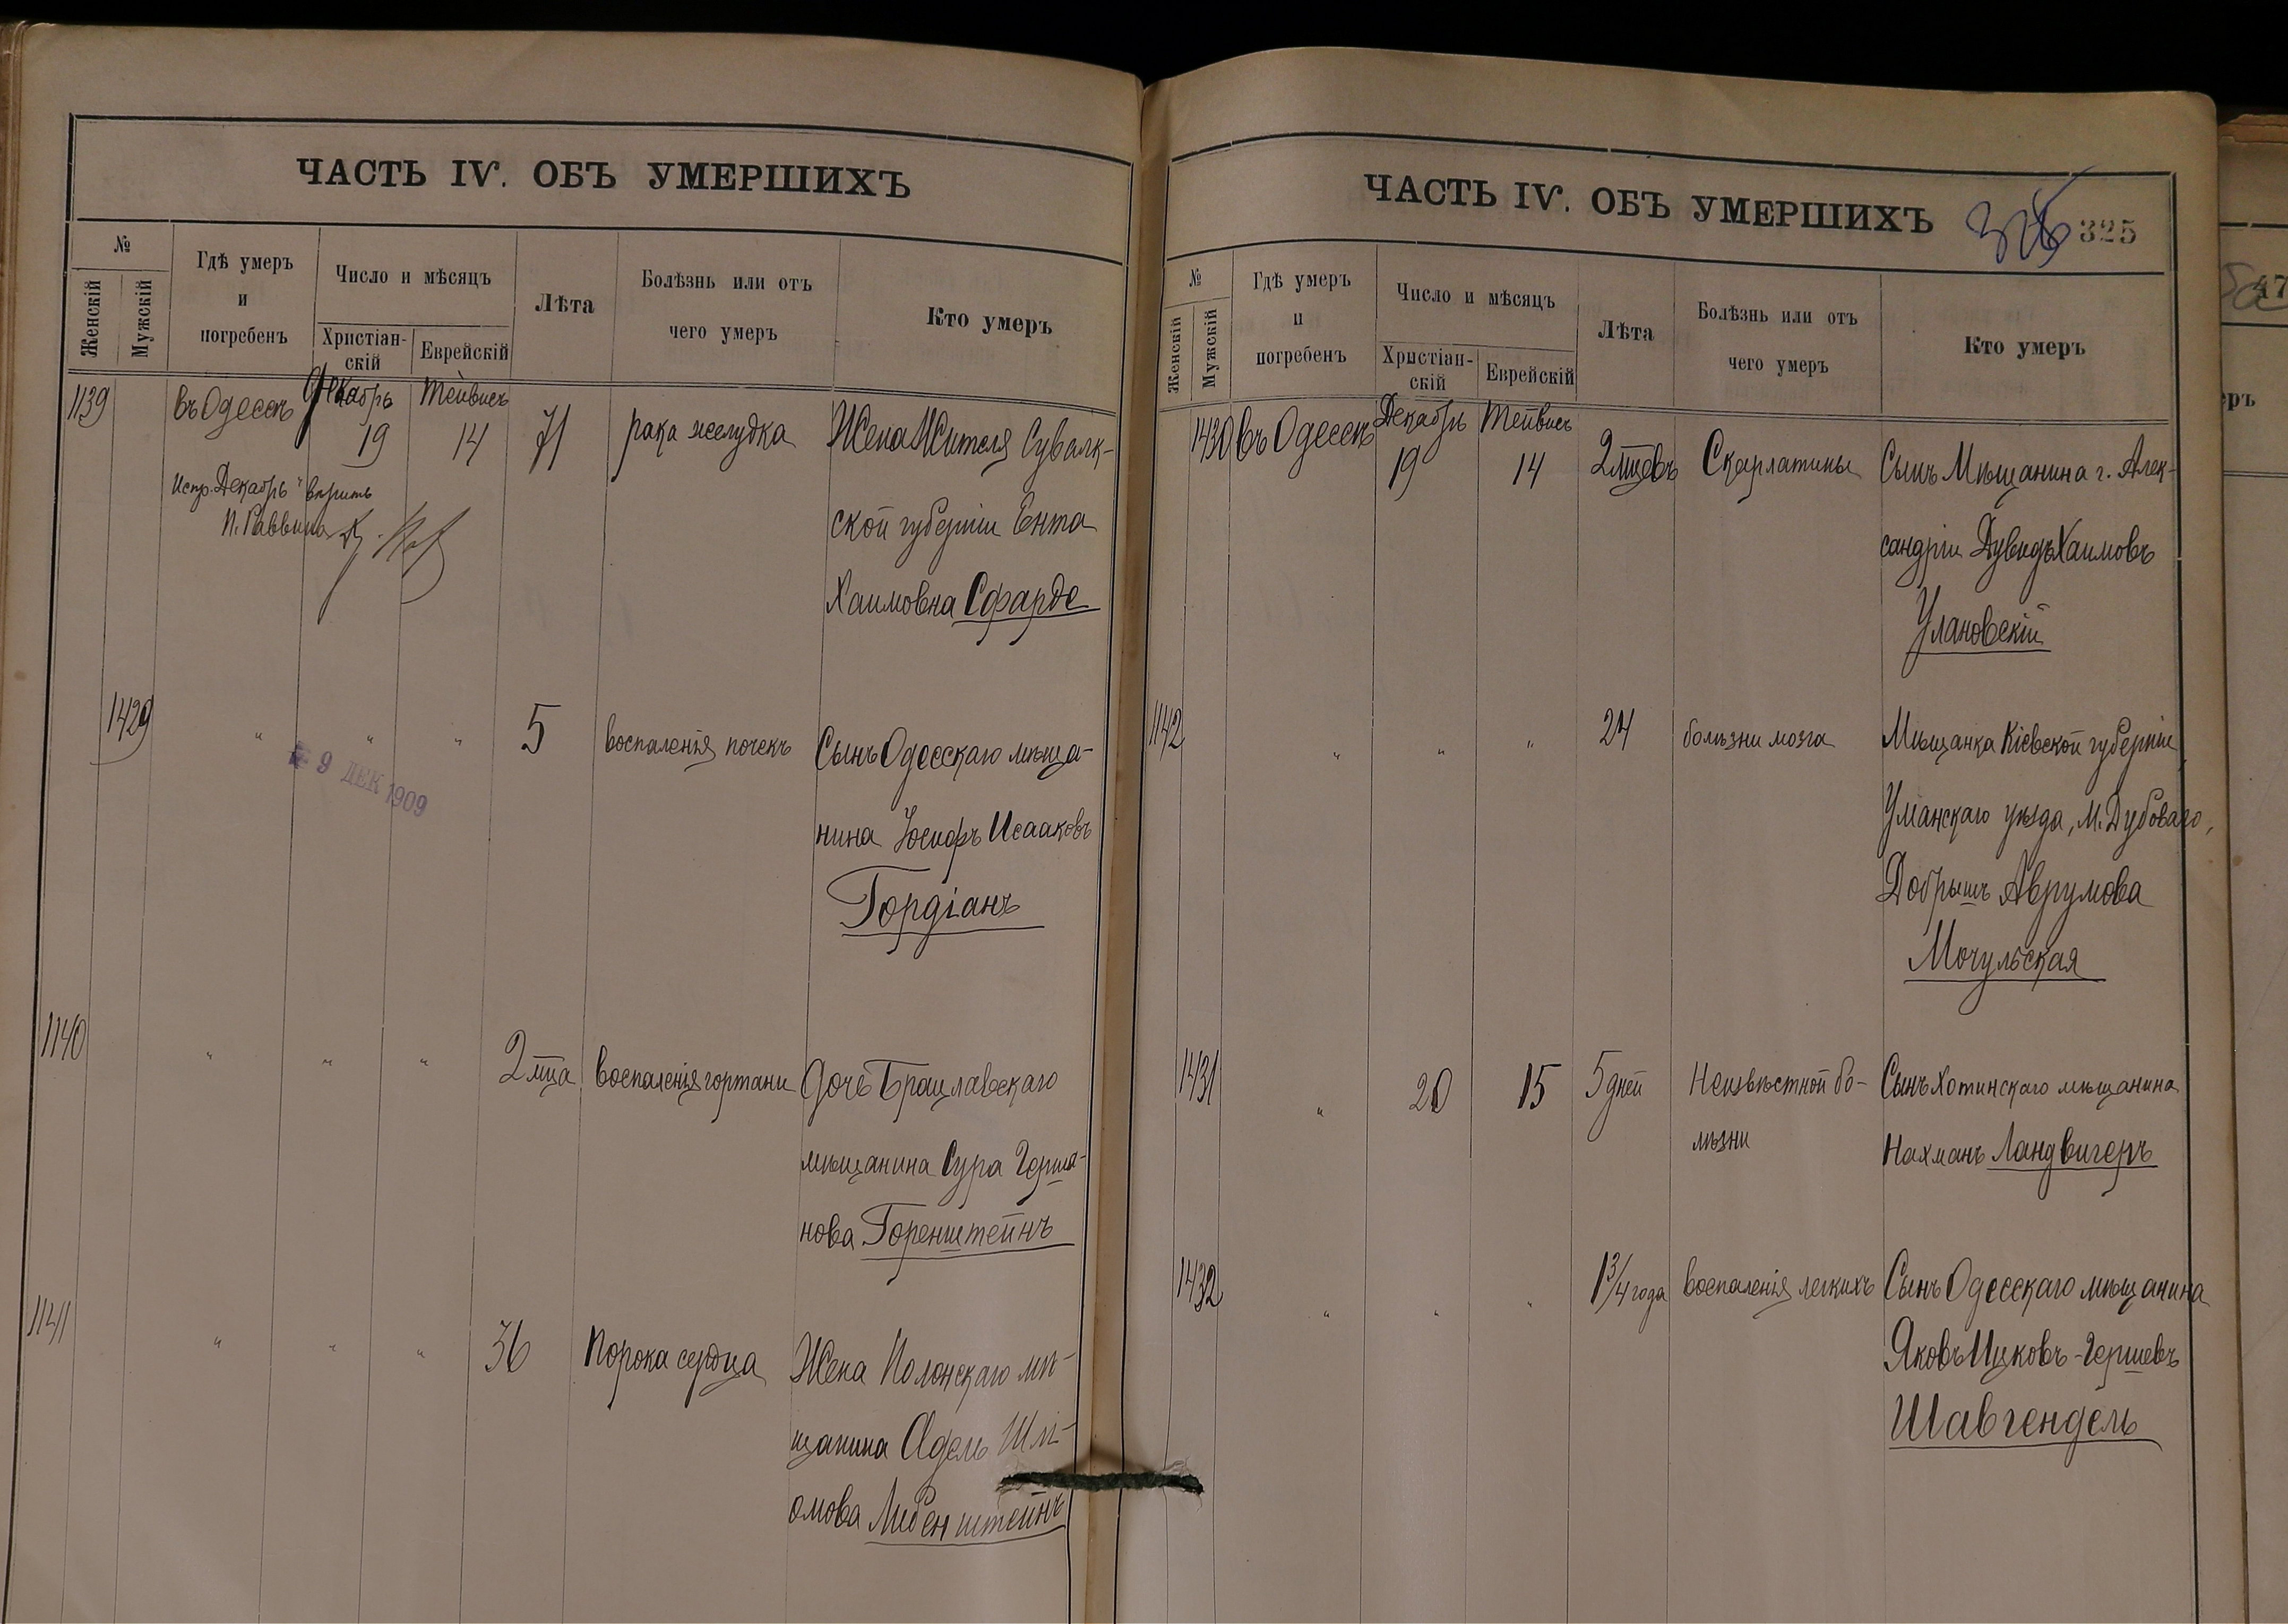 ЧАСТЬ IV. ОБЪ УМЕРШИХЪ
№
Женскій
Мужскій
Гдѣ умеръ
и
погребенъ
Число и мѣсяцъ
Христіан-
скій
Еврейскій
Лѣта
Болѣзнь или отъ
чего умеръ
Кто умеръ
1139
въ Одессѣ
Декабрь
19
Тейвисъ
14
71
рака желудка
Жена Жителя Сувалк-
ской губерніи Ента
Хаимовна Сфарде
Испр. "Декабрь" вѣрить
П. Раввина
1429
" " "
5
воспаленія почекъ
Сынъ Одесскаго мѣща-
нина Іосифъ Исааковъ
Гордіанъ
9 ДЕК 1909
1140
" " "
2 мца
воспаленія гортани
Дочь Брацлавскаго
мѣщанина Сура Герша-
нова Горенштейнъ
1141
" " "
36
порока сердца
Жена Полонскаго мѣ-
щанина Адель Шлі-
омова Либенштейнъ
ЧАСТЬ IV. ОБЪ УМЕРШИХЪ
325
№
Женскій
Мужскій
Гдѣ умеръ
и
погребенъ
Число и мѣсяцъ
Христіан-
скій
Еврейскій
Лѣта
Болѣзнь или отъ
чего умеръ
Кто умеръ
1430
въ Одессѣ
Декабрь
19
Тейвисъ
14
2 мцевъ
Скарлатины
Сынъ Мѣщанина г. Алек-
сандріи Дувидъ Хаимовъ
Улановскій
1142
" " "
24
болѣзни мозга
Мѣщанка Кіевской губерніи
Уманскаго уѣзда, м. Дубоваго,
Добрышъ Аврумова
Мочульская
1431
"
20
15
5 дней
Неизвѣстной бо-
лѣзни
Сынъ Хотинскаго мѣщанина
Нахманъ Ландвигеръ
1432
" " "
1 3/4 года
воспаленія легкихъ
Сынъ Одесскаго мѣщанина
Яковъ Ицковъ-Гершевъ
Шавгендель
47
ръ